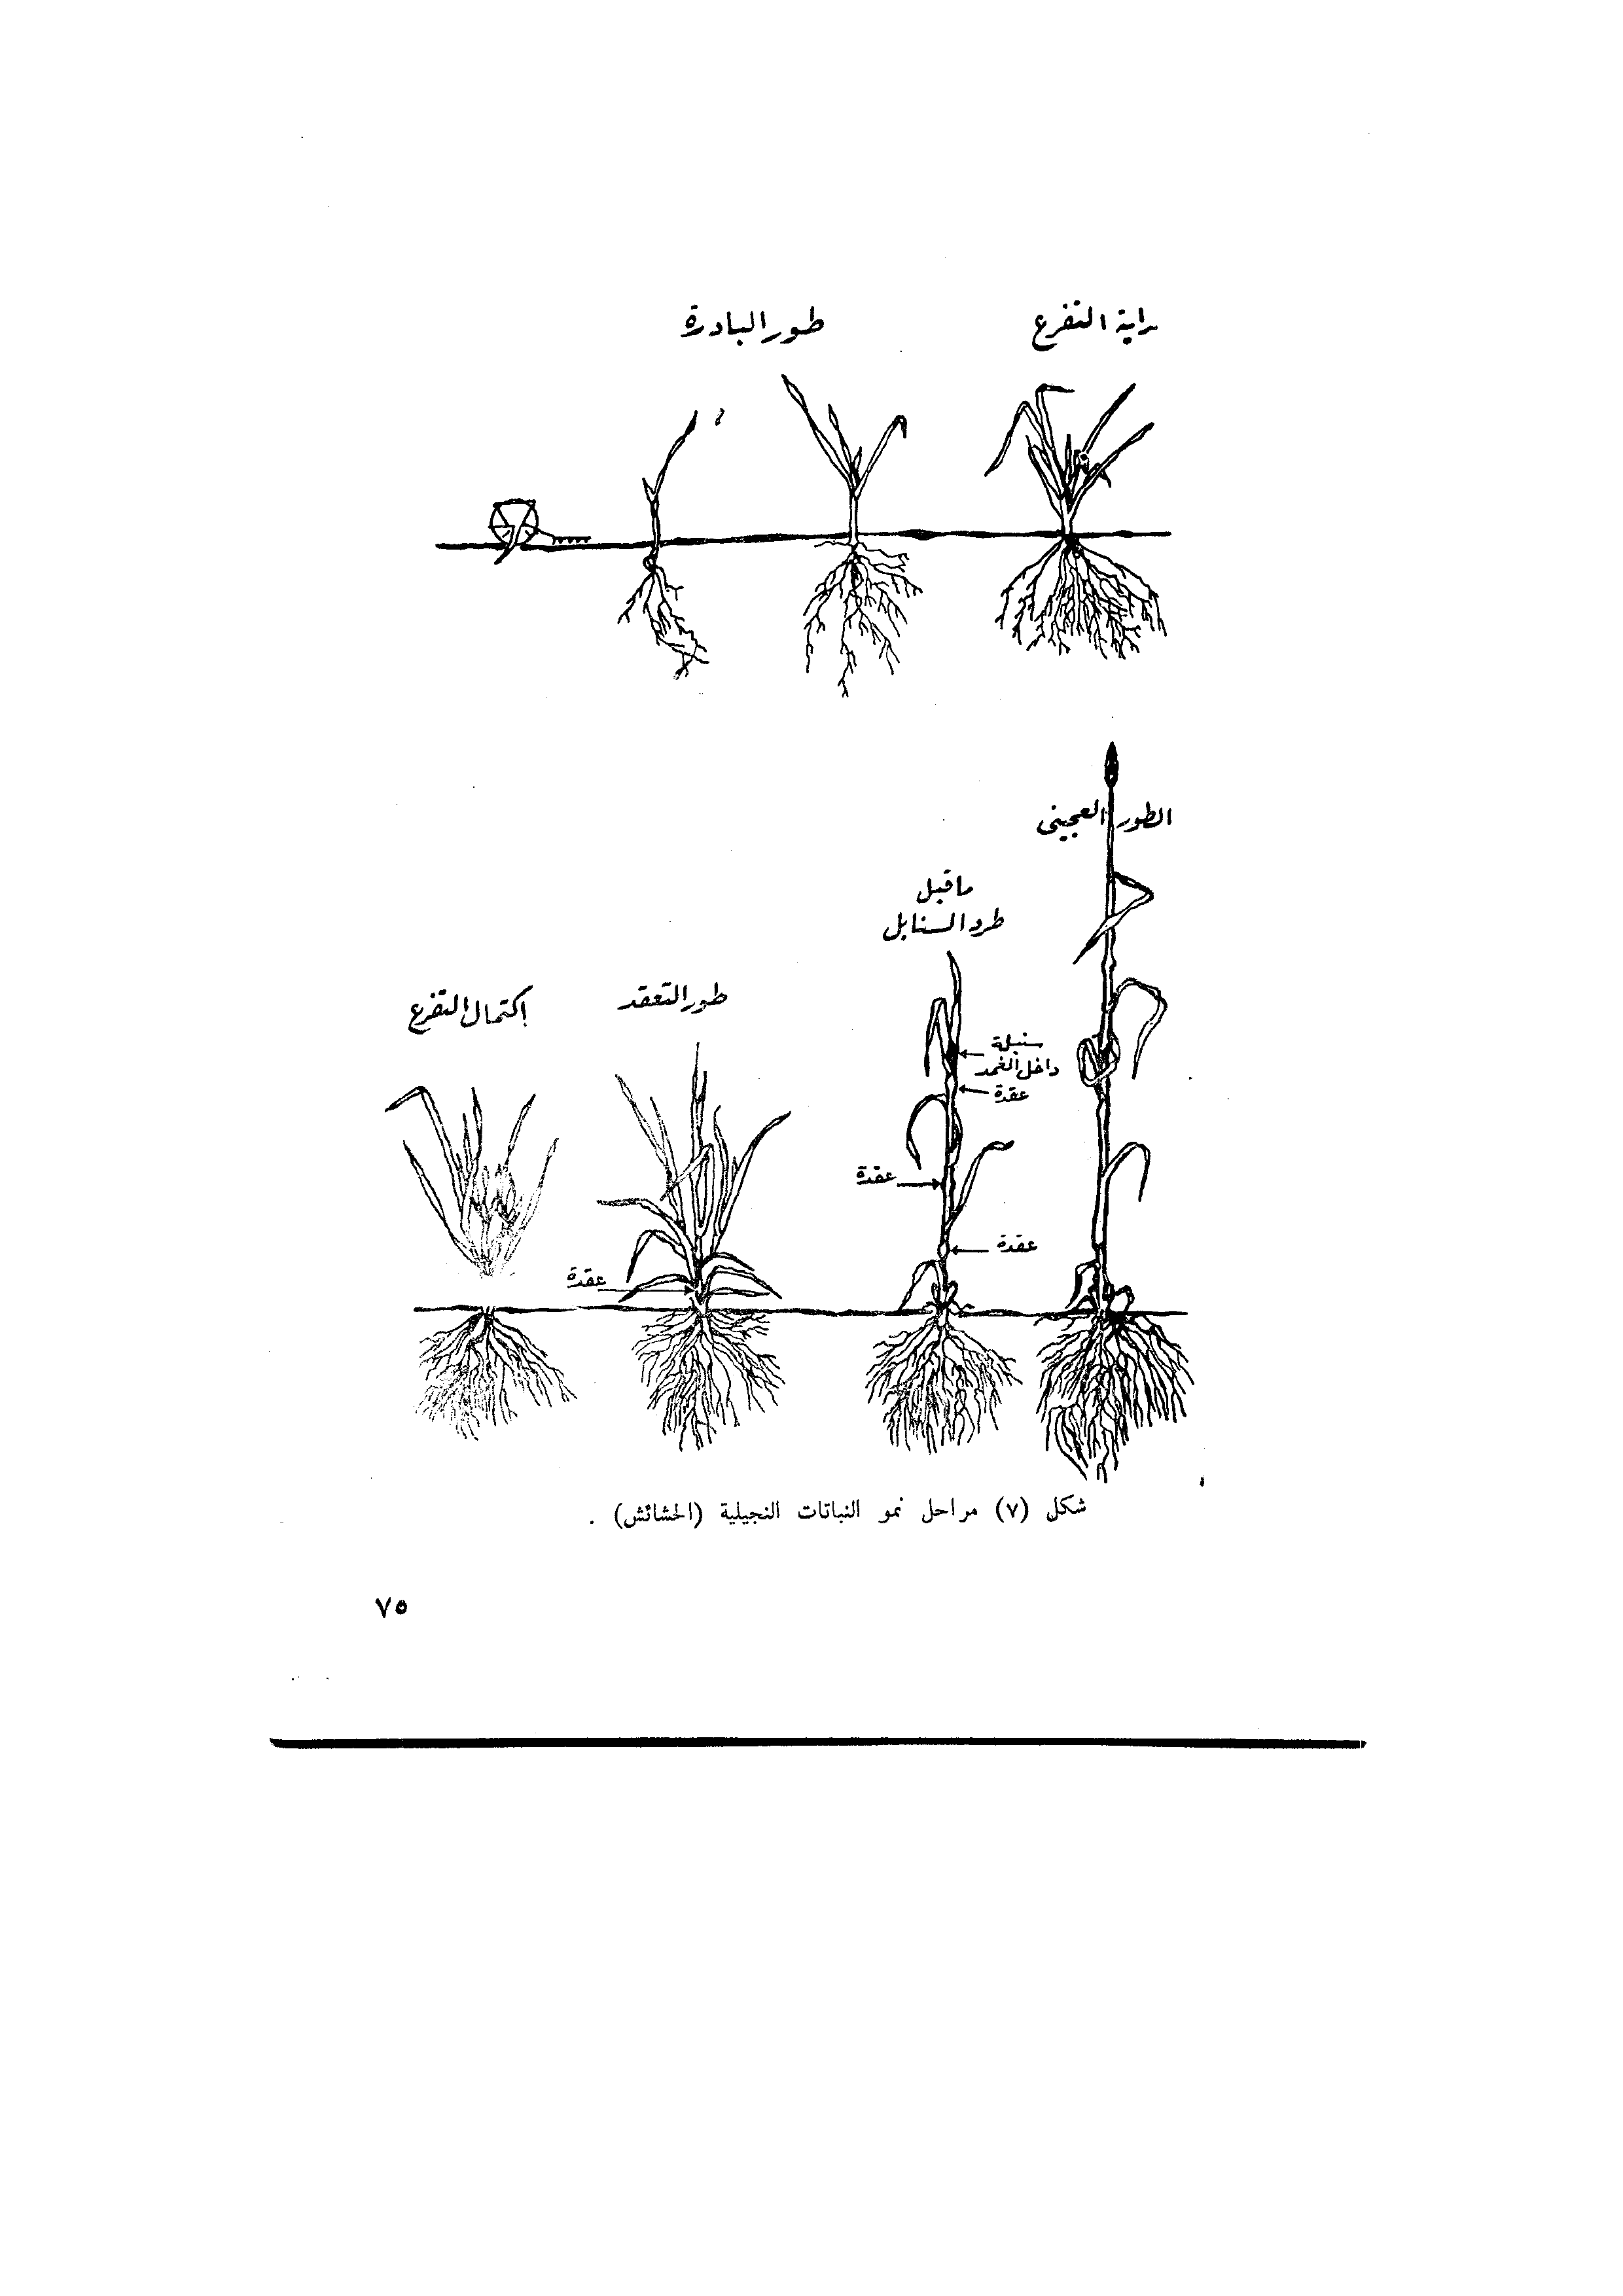 بداية التفرع
طور البادرة
الطور العجينى
ما قبل
طرد السنابل
طور التعقد
إكتمال التفرع
سنبلة
داخل الغمد
عقدة
عقدة
عقدة
عقدة
شكل (٧) مراحل نمو النباتات النجيلية (الحشائش) .
٧٥